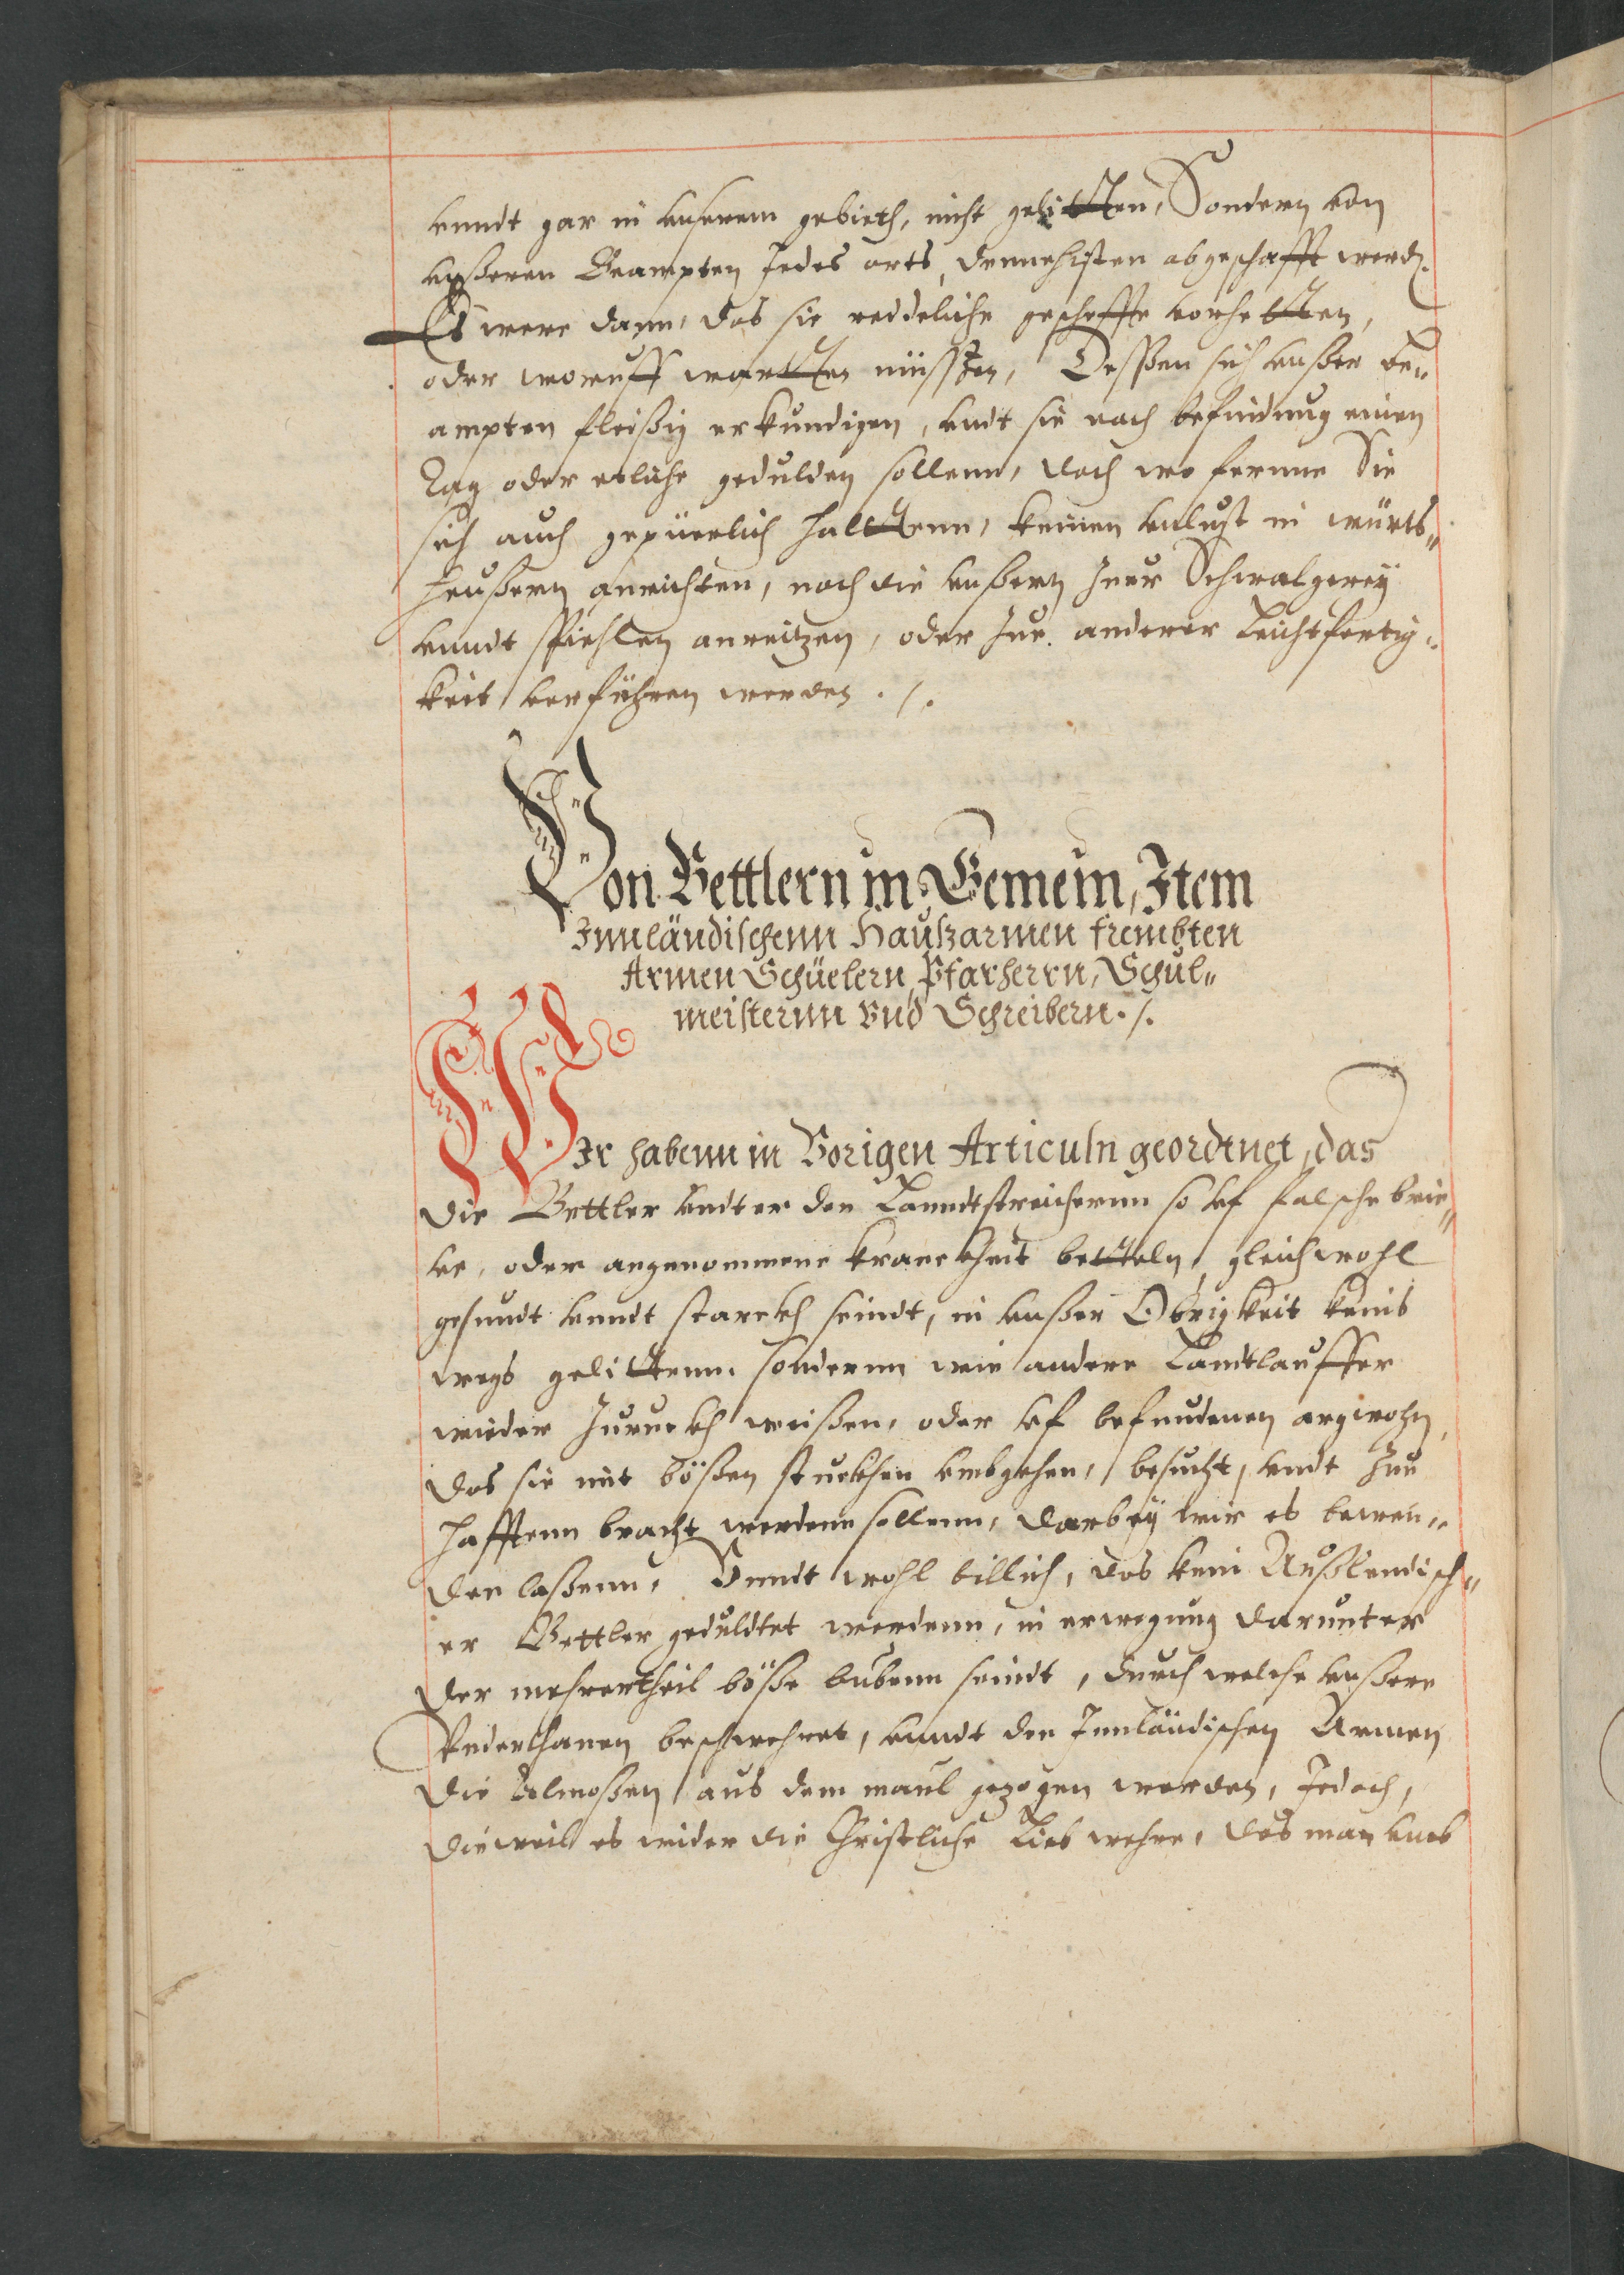 vnndt gar in vnserem gebieth, nicht gelitten, Sondern von
vnßeren Beampten Jedes orts, dennechsten abgeschafft werd.
Es were dann, das sie reddeliche gescheffte vorhetten,
oder woruff wartten müssten, Dessen sich vnßer Be„
ampten fleißig erkundigen, vndt sie nach befindung einen
Tag oder etliche gedulden sollenn, doch wo fernne Sie
sich auch gepüerlich halttenn, keinen vnlust in würts„
heußern anrichten, noch die vnßern Zuer Schwalgerey
vnndt spiehlen anreitzen, oder Zue anderer Leichtfertig„
keit verführen werden ./.
Von Bettlern in Gemein, Item
Innländischenn Haußarmen frembten
Armen Schüelern, Pfarherrn, Schul„
meisternn Vnd Schreibern ./.
WIr habenn in Vorigen Articuln geordtnet, das
die Bettler vndter den Lanndtstreichernn so vf falsche brie„
ve, oder angenommene kranckheit betteln, gleichwohl
gesundt vnndt starckh seindt, in vnßer Obrigkeit keins
wegs gelittenn. sondernn wie andere Landtlauffer
wieder Zuruckh weißen, oder vf befundenen argwohn,
das sie mit bößen stuckhen vmbgehen, besucht, vndt Zue
hafftenn bracht werdenn sollenn, darbey wir es bewen„
den laßenn, Vnndt wohl billich, das kein Außlendisch„
er Bettler geduldtet werdenn, in erwegung darunter
der mehrertheil böße bubenn seindt, durch welche vnßere
Vnderthanen beschwehret, vnndt den Innländischen Armen
die Almoßen aus dem maul gezogen werden, Jedoch,
dieweil es wider die Christliche Lieb wehre, das man vmb